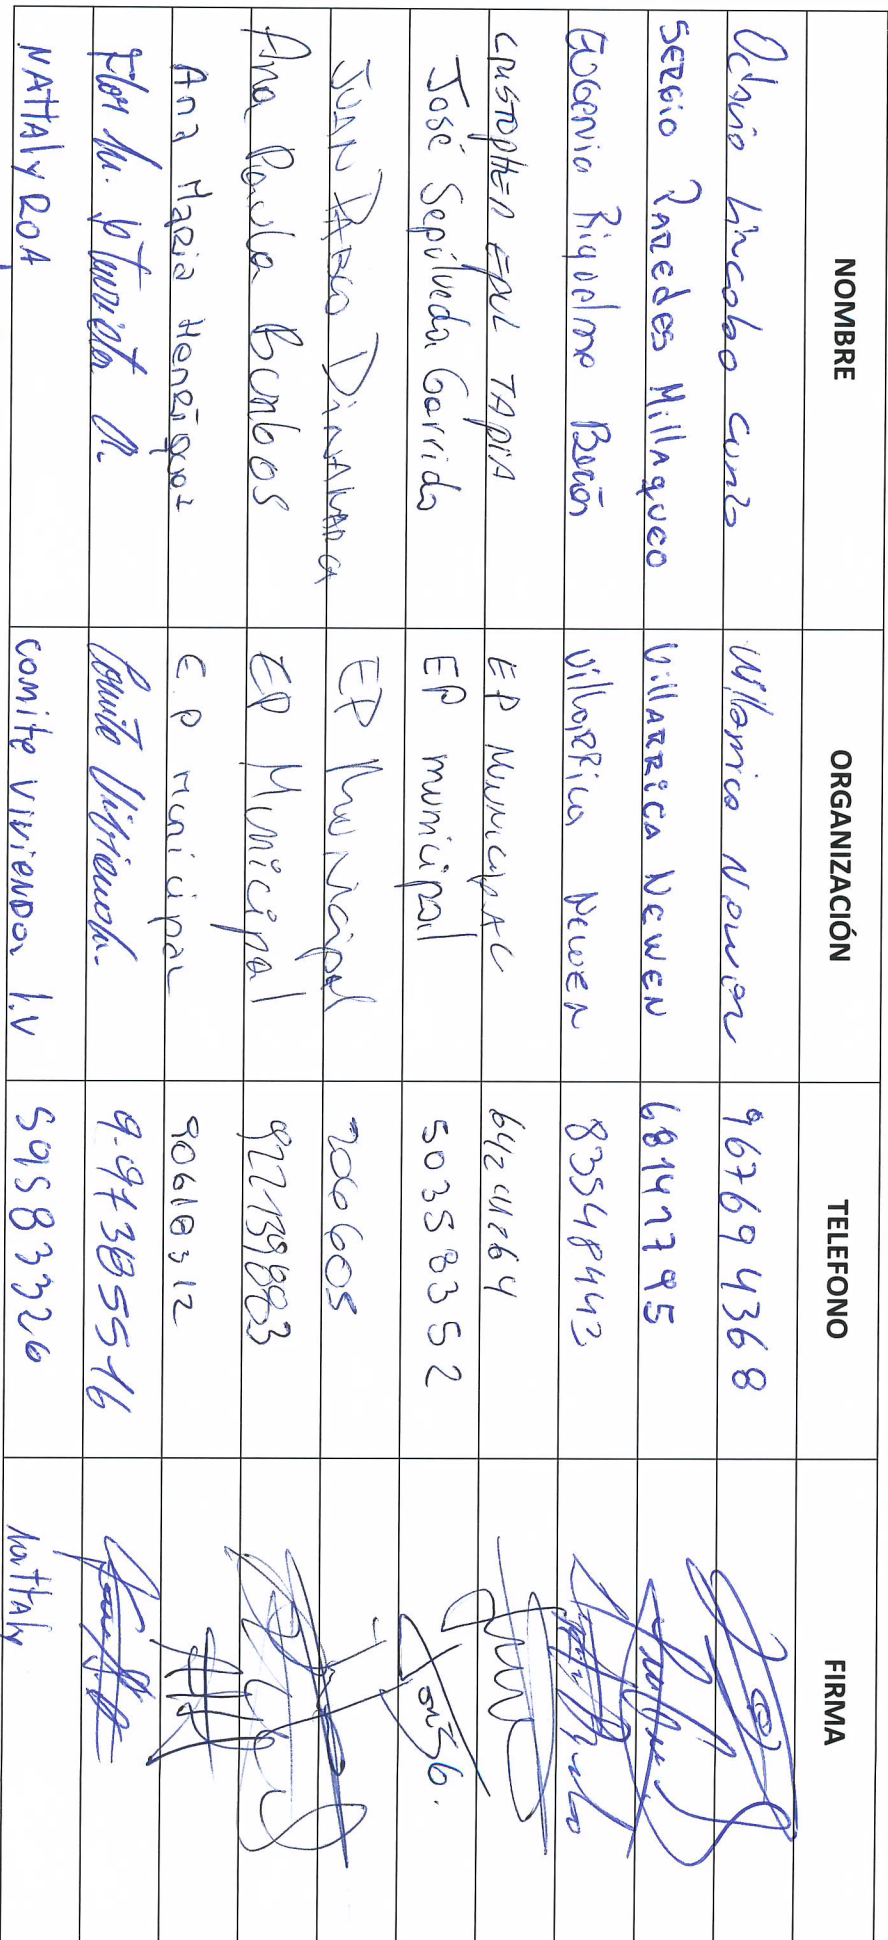 NOMBRE ORGANIZACIÓN TELEFONO FIRMA
Lincolao 967694368
SERGIO PAREDES MillAqueo VillARRICA NEWEN 68141795
EUGENIA Riquelme VillaRRica NeweN 83548442
CRISTOPHER EPUL TAPIA EP MUNICIPAL 64204264
José Sepúlveda Garrido EP municipal 50358352
JUAN PABLO DINAMARCA EP Municipal 206605
Ana Paula Bcmbos EP Municipal 922139883
Ana Maria Henriquez E.P Municipal 90618312
Flor M. 9.97385516
NATTALY ROA comite VIVIENDA I.V 59583326 Nattaly